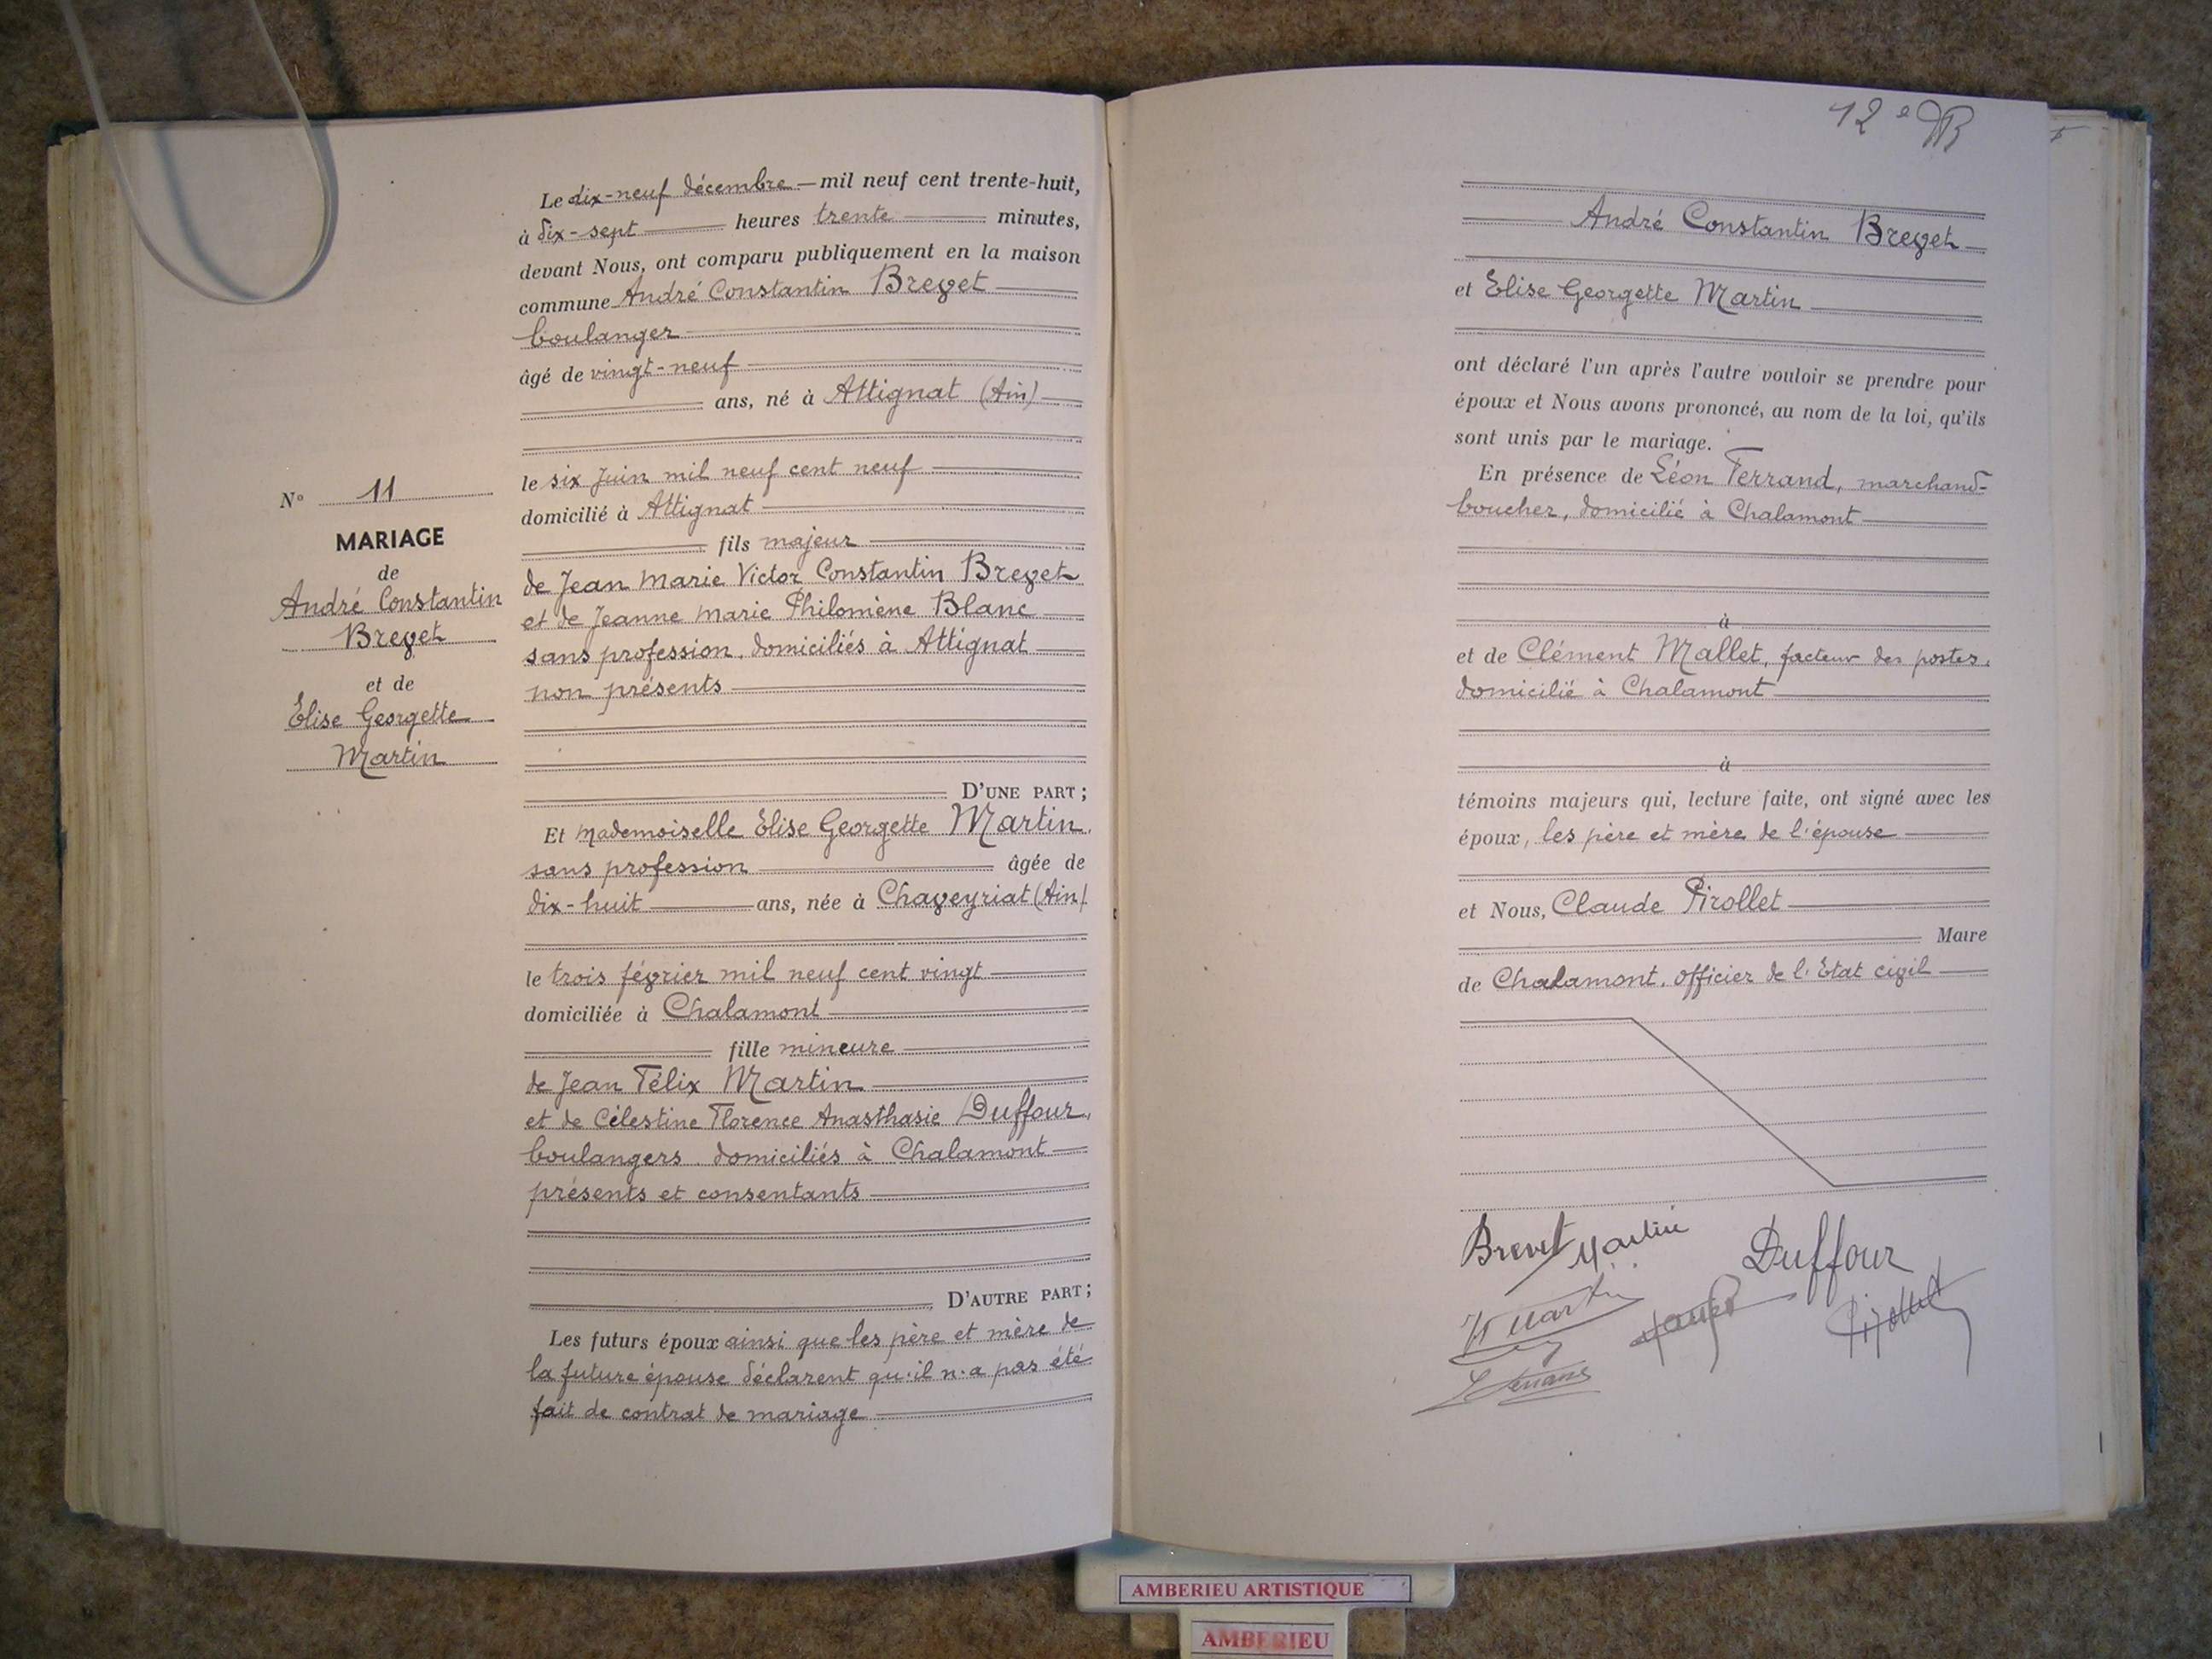 Le dix-neuf décembre — mil neuf cent trente-huit,
à dix-sept heures trente minutes,
devant Nous, ont comparu publiquement en la maison
commune André Constantin Brevet
boulanger
âgé de vingt-neuf
ans, né à Attignat (Ain)
le six Juin mil neuf cent neuf
domicilié à Attignat
fils majeur
de Jean Marie Victor Constantin Brevet
et de Jeanne Marie Philomène Blanc
sans profession, domiciliés à Attignat
non présents
D'UNE PART ;
Et Mademoiselle Elise Georgette Martin,
sans profession âgée de
dix-huit ans, née à Chaveyriat (Ain)
le trois février mil neuf cent vingt
domiciliée à Chalamont
fille mineure
de Jean Félix Martin
et de Célestine Florence Anasthasie Duffour,
boulangers, domiciliés à Chalamont
présents et consentants
D'AUTRE PART ;
Les futurs époux ainsi que les père et mère de
la future épouse déclarent qu'il n'a pas été
fait de contrat de mariage
N° 11
MARIAGE
de
André Constantin
Brevet
et de
Elise Georgette
Martin
12e
André Constantin Brevet
et Elise Georgette Martin
ont déclaré l'un après l'autre vouloir se prendre pour
époux et Nous avons prononcé, au nom de la loi, qu'ils
sont unis par le mariage.
En présence de Léon Ferrand, marchand-
boucher, domicilié à Chalamont
à
et de Clément Mallet, facteur des postes,
domicilié à Chalamont
à
témoins majeurs qui, lecture faite, ont signé avec les
époux, les père et mère de l'épouse
et Nous, Claude Pirollet
Maire
de Chalamont, officier de l'Etat civil
Brevet Martin
Duffour
Martin
Pirollet
AMBERIEU ARTISTIQUE
AMBERIEU